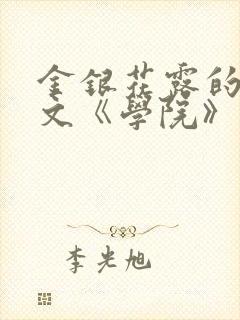 金銀花露的
文《學院》
李光旭